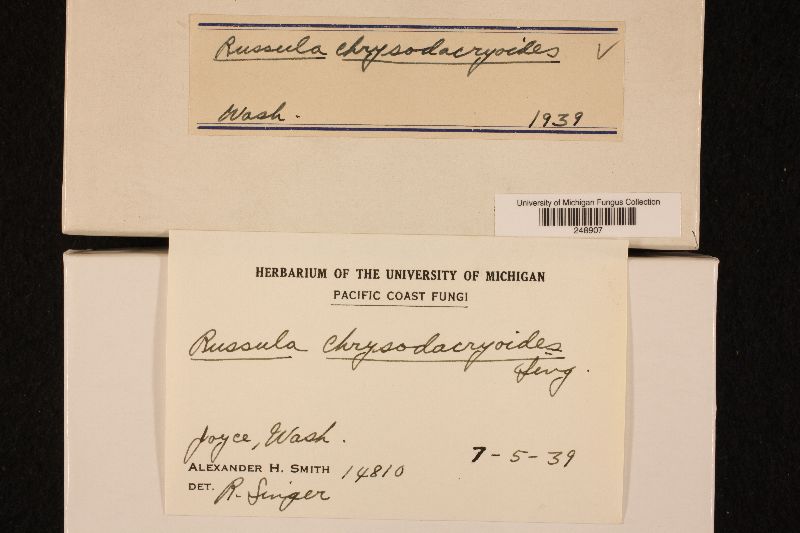 Russula chrysodacryoides ✓
Wash. 1939
University of Michigan Fungus Collection
248907
HERBARIUM OF THE UNIVERSITY OF MICHIGAN
PACIFIC COAST FUNGI
Russula chrysodacryoides
Sing.
Joyce, Wash.
7-5-39
ALEXANDER H. SMITH 14810
DET. R. Singer